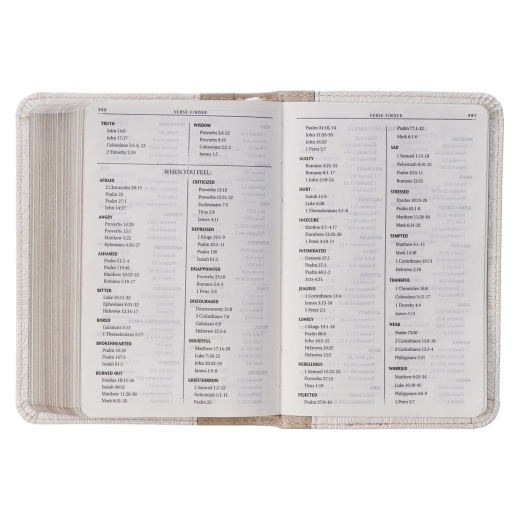 990
VERSE FINDER
TRUTH
John 14:6
John 17:17
2 Timothy 2:19
WISDOM
Proverbs 2:6-22
Proverbs 9:10
Colossians 2:2-3
James 1:5
WHEN YOU FEEL:
AFRAID
2 Chronicles 20:15
Psalm 23
Psalm 27:1
John 14:27
ANGRY
Proverbs 14:29
Proverbs 15:1
Matthew 5:22
Ephesians 4:26-27
ASHAMED
Psalm 31:1-4
Psalm 119:46
Matthew 10:32-33
Romans 1:16-17
BITTER
Luke 15:11-32
Ephesians 4:31-32
Hebrews 12:14-17
BORED
Galatians 5:13
1 Thessalonians 5:17
BROKENHEARTED
Psalm 34:18
Psalm 147:3
Isaiah 61:1
BURNED OUT
Exodus 18:13-26
Isaiah 40:31
Matthew 11:28-30
Mark 6:31-32
CRITICIZED
Proverbs 13:18
Proverbs 15:31-32
Ecclesiastes 7:5
Titus 2:8
James 4:11
DEPRESSED
1 Kings 19:1-9
Psalm 42:5-11
Psalm 130
Isaiah 61:3
DISAPPOINTED
Proverbs 23:18
Romans 5:4-5
1 Peter 5:6
DISCOURAGED
Deuteronomy 31:8
Galatians 6:9
Hebrews 12:5-6
DOUBTFUL
Matthew 17:14-20
Luke 7:18-23
John 20:24-29
James 1:5-8
GRIEF/SORROW
2 Samuel 1:1-12
Nehemiah 1:1-11
Psalm 23
VERSE FINDER
991
Psalm 31:10, 14
John 11:33-35
John 16:33
1 Peter 5:7
GUILTY
Romans 3:23-31
Romans 8:1-17
1 John 3:18-24
HURT
Luke 6:28
1 Thessalonians 3:1-8
INSECURE
Exodus 3:7-4:17
Numbers 13:25-30
1 Peter 4:10-11
INTIMIDATED
Genesis 15:1
Psalm 27:1
Psalm 46:1-3
Acts 4:31
JEALOUS
1 Corinthians 13:4
James 3:13-18
1 Peter 2:1
LONELY
1 Kings 19:1-18
Psalm 68:6
Hebrews 10:25
Hebrews 13:5
REBELLIOUS
1 Samuel 15:22-23
Proverbs 27:12
Titus 1:10
REJECTED
Psalm 27:9-10
Psalm 77:1-12
Mark 6:1-6
SAD
1 Samuel 1:15-18
Nehemiah 8:10-12
Psalm 42:5-11
Romans 12:15
STRESSED
Exodus 18:13-26
Psalm 62:1-8
Matthew 11:28-30
Mark 6:31-32
TEMPTED
Matthew 4:1-11
Mark 14:38
1 Corinthians 10:13
Hebrews 2:18
THANKFUL
1 Chronicles 16:8
Colossians 3:15-17
1 Timothy 4:4
James 5:13
WEAK
Psalm 73:26
2 Corinthians 12:8-10
2 Corinthians 13:3-4
Philippians 3:21
WORRIED
Matthew 6:25-34
Luke 10:38-42
Philippians 4:6-9
1 Peter 5:7